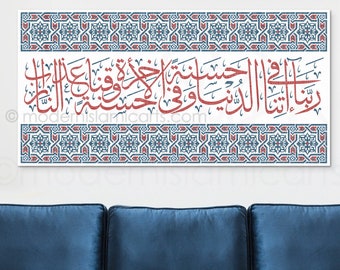 ربنا آتنا في الدنيا حسنة وفي الآخرة حسنة وقنا عذاب النار
© modernislamicarts.com